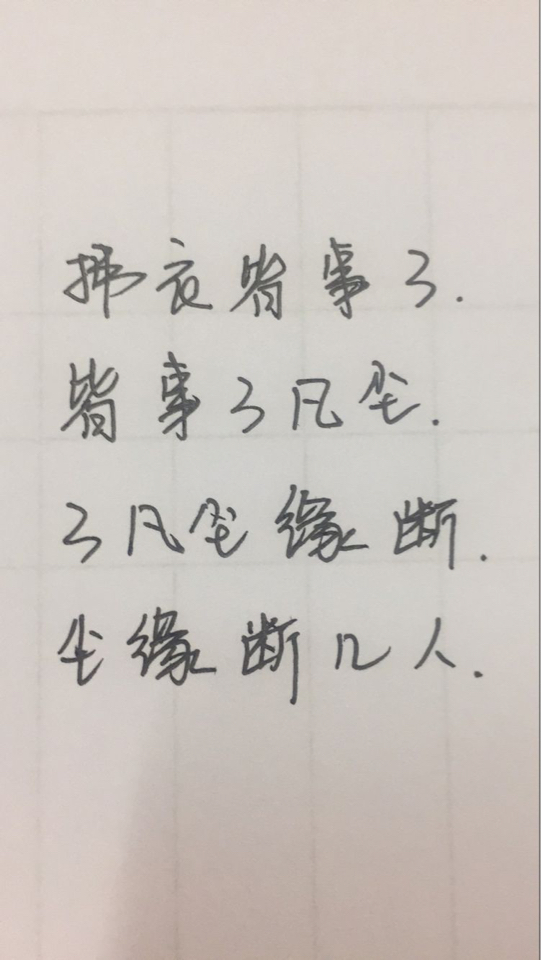 拂衣皆事了.
皆事了凡尘.
了凡尘缘断.
尘缘断几人.